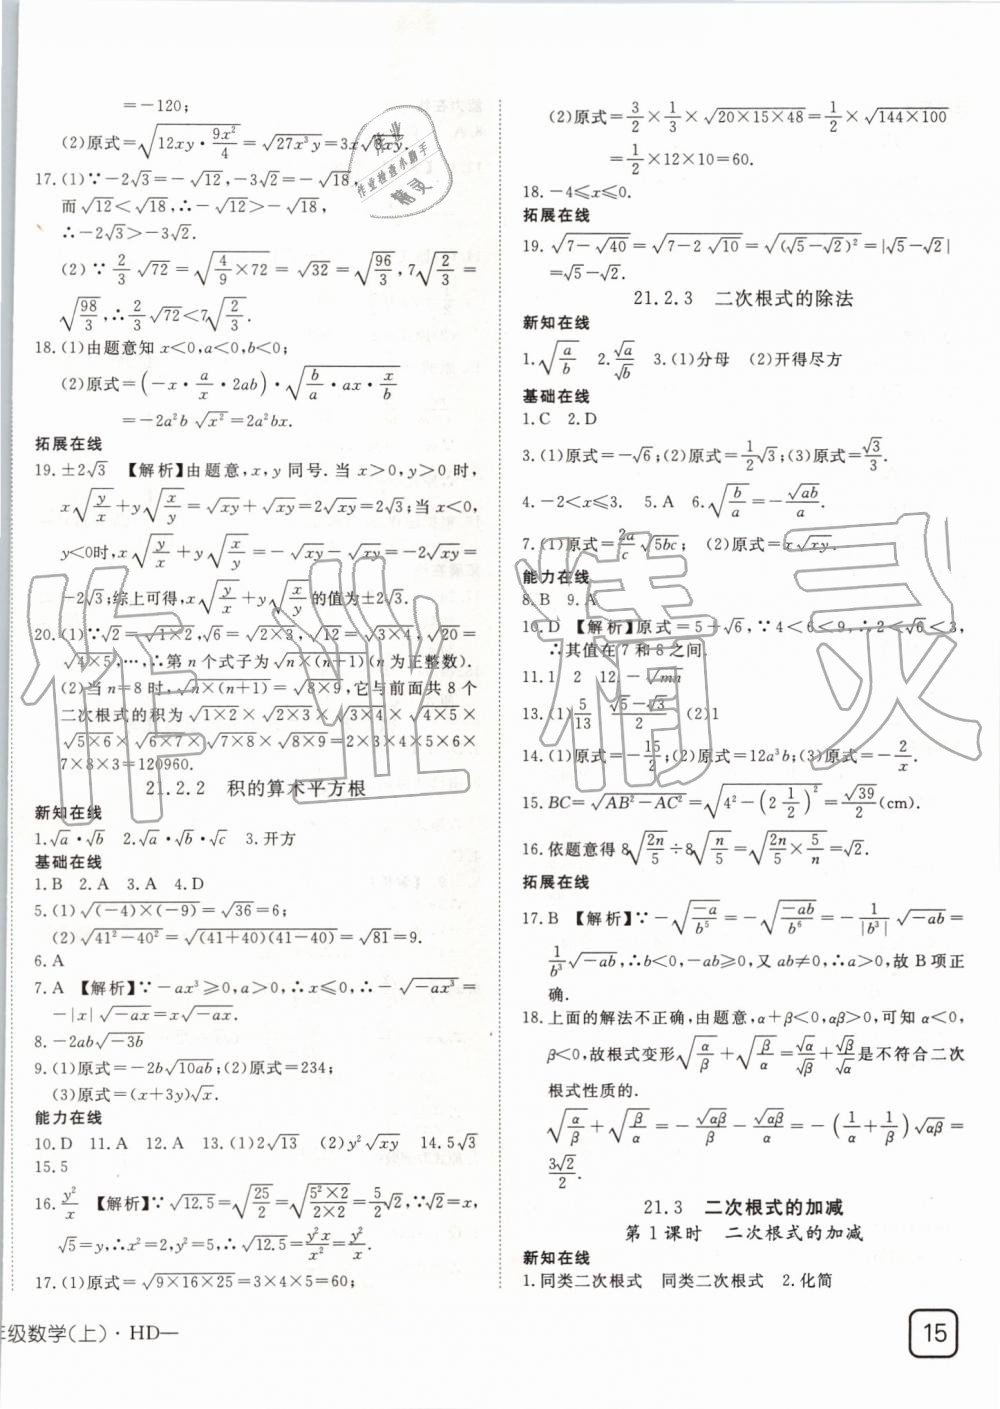 =-120;
(2)原式=√(12xy·9x²/4)=√(27x³y)=3x√(3xy).
17.(1)∵-2√3=-√12,-3√2=-√18,
而√12<√18,∴-√12>-√18,
∴-2√3>-3√2.
(2)∵2/3√72=√(4/9×72)=√32=√(96/3),7√(2/3)=
√(98/3),∴2/3√72<7√(2/3).
18.(1)由题意知x<0,a<0,b<0;
(2)原式=(-x·a/x·2ab)·√(b/a·ax·x/b)
=-2a²b√(x²)=2a²bx.
拓展在线
19.±2√3 【解析】由题意,x,y同号.当x>0,y>0时,
x√(y/x)+y√(x/y)=√(xy)+√(xy)=2√(xy)=2√3;当x<0,
y<0时,x√(y/x)+y√(x/y)=-√(xy)-√(xy)=-2√(xy)=
-2√3;综上可得,x√(y/x)+y√(x/y)的值为±2√3.
20.(1)∵√2=√(1×2),√6=√(2×3),√12=√(3×4),√20=
√(4×5),…,∴第n个式子为√(n×(n+1))(n为正整数).
(2)当n=8时,√(n×(n+1))=√(8×9),它与前面共8个
二次根式的积为√(1×2)×√(2×3)×√(3×4)×√(4×5)×
√(5×6)×√(6×7)×√(7×8)×√(8×9)=2×3×4×5×6×
7×8×3=120960.
21.2.2 积的算术平方根
新知在线
1.√a·√b 2.√a·√b·√c 3.开方
基础在线
1.B 2.A 3.A 4.D
5.(1)√((-4)×(-9))=√36=6;
(2)√(41²-40²)=√((41+40)(41-40))=√81=9.
6.A
7.A 【解析】∵-ax³≥0,a>0,∴x≤0,∴-√(-ax³)=
-|x|√(-ax)=x√(-ax).
8.-2ab√(-3b)
9.(1)原式=-2b√(10ab);(2)原式=234;
(3)原式=(x+3y)√x.
能力在线
10.D 11.A 12.A 13.(1)2√13 (2)y²√(xy) 14.5√3
15.5
16.y²/x 【解析】∵√12.5=√(25/2)=√((5²×2)/(2×2))=5/2√2,∵√2=x,
√5=y,∴x²=2,y²=5,∴√12.5=y²x/x²=y²/x.
17.(1)原式=√(9×16×25)=3×4×5=60;
(2)原式=3/2×1/3×√(20×15×48)=1/2×√(144×100)=
1/2×12×10=60.
18.-4≤x≤0.
拓展在线
19.√(7-√40)=√(7-2√10)=√((√5-√2)²)=|√5-√2|
=√5-√2.
21.2.3 二次根式的除法
新知在线
1.√(a/b) 2.√a/√b 3.(1)分母 (2)开得尽方
基础在线
1.C 2.D
3.(1)原式=-√6;(2)原式=1/2√3;(3)原式=√3/3.
4.-2<x≤3. 5.A 6.√(b/a)=-√(ab)/a.
7.(1)原式=2a/c√(5bc); (2)原式=x√(xy).
能力在线
8.B 9.A
10.D 【解析】原式=5+√6,∵4<6<9,∴2<√6<3,
∴其值在7和8之间.
11.1 2 12.-√(mn)
13.(1)5/13 (√5-√3)/2 (2)1
14.(1)原式=-15/2;(2)原式=12a³b;(3)原式=-2/x.
15.BC=√(AB²-AC²)=√(4²-(2 1/2)²)=√39/2(cm).
16.依题意得8√(2n/5)÷8√(n/5)=√(2n/5×5/n)=√2.
拓展在线
17.B 【解析】∵-√(-a/b⁵)=-√(-ab/b⁶)=-1/|b³|√(-ab)=
1/b³√(-ab),∴b<0,-ab≥0,又ab≠0,∴a>0,故B项正
确.
18.上面的解法不正确,由题意,α+β<0,αβ>0,可知α<0,
β<0,故根式变形√(α/β)+√(β/α)=√α/√β+√β/√α是不符合二次
根式性质的.
√(α/β)+√(β/α)=-√(αβ)/β-√(αβ)/α=-(1/α+1/β)√(αβ)=
3√2/2.
21.3 二次根式的加减
第1课时 二次根式的加减
新知在线
1.同类二次根式 同类二次根式 2.化简
年级数学(上)·HD—
15
作业
作业检查小助手
精灵
作业精灵